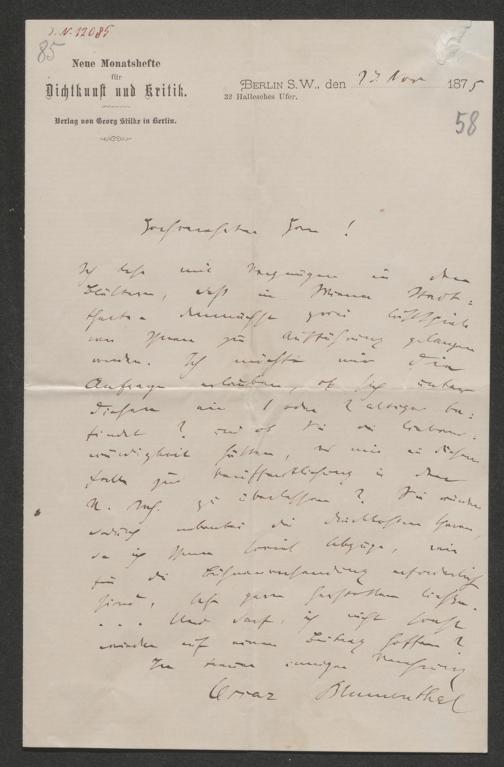 J. N. 12085
85
Neue Monatshefte
für
Dichtkunst und Kritik.
Verlag von Georg Stilke in Berlin.
BERLIN S.W., den 23. Nov 1875
32 Hallesches Ufer.
58
Hochverehrter Herr!
Ich lese mit Vergnügen in den
Blättern, daß im Wiener Stadt-
theater demnächst zwei Lustspiele
von Ihnen zur Aufführung gelangen
werden. Ich möchte mir die
Anfrage erlauben, ob sich unter
diesen ein 1 oder 2 aktiges be-
findet? und ob Sie die liebens-
würdigkeit hätten, es mir in diesem
Falle zur Veröffentlichung in den
N. Mh. zu überlassen? Sie würden
dadurch nebenbei die Druckkosten sparen,
da ich Ihnen soviel Abzüge, wie
für die Bühnenversendung erforderlich
sind, sehr gern herstellen ließe.
... Und darf ich nicht sonst
wieder auf einen Beitrag hoffen?
In inniger Verehrung
Oscar Blumenthal